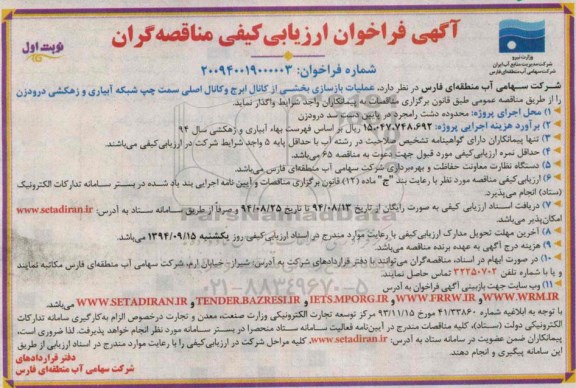 آگهی فراخوان ارزیابی‌کیفی مناقصه‌گران
نوبت اول
وزارت نیرو
شرکت مدیریت منابع آب ایران
شرکت سهامی آب منطقه‌ای فارس
شماره فراخوان: ۲۰۰۹۴۰۰۱۹۰۰۰۰۰۳
شرکت سهامی آب منطقه‌ای فارس در نظر دارد، عملیات بازسازی بخشی از کانال ابرج وکانال اصلی سمت چپ شبکه آبیاری و زهکشی درودزن
را از طریق مناقصه عمومی طبق قانون برگزاری مناقصات به پیمانکاران واجد شرایط واگذار نماید.
۱) محل اجرای پروژه: محدوده دشت رامجرد در پایین دست سد درودزن
۲) برآورد هزینه اجرایی پروژه: ۱۵،۰۴۷،۷۴۸،۶۹۲ ریال بر اساس فهرست بهاء آبیاری و زهکشی سال ۹۴
۳) تنها پیمانکاران دارای گواهینامه تشخیص صلاحیت در رشته آب با حداقل پایه ۵ واجد شرایط شرکت در ارزیابی‌کیفی می‌باشند.
۴) حداقل نمره ارزیابی‌کیفی مورد قبول جهت دعوت به مناقصه ۶۵ می‌باشد.
۵) دستگاه نظارت معاونت حفاظت و بهره‌برداری شرکت سهامی آب منطقه‌ای فارس می‌باشد.
۶) ارزیابی کیفی مناقصه مورد نظر با رعایت بند "ج" ماده (۱۲) قانون برگزاری مناقصات و آیین نامه اجرایی بند یاد شده در بستر سامانه تدارکات الکترونیک
(ستاد) انجام می‌پذیرد.
۷) دریافت اسناد ارزیابی کیفی به صورت رایگان از تاریخ ۹۴/۰۸/۱۳ تا تاریخ ۹۴/۰۸/۲۵ صرفاً از طریق سامانه ستاد به آدرس: www.setadiran.ir
امکان‌پذیر می‌باشد.
۸) آخرین مهلت تحویل مدارک ارزیابی‌کیفی با رعایت موارد مندرج در اسناد ارزیابی‌کیفی روز یکشنبه ۱۳۹۴/۰۹/۱۵ می‌باشد.
۹) هزینه درج آگهی به عهده برنده مناقصه می‌باشد.
۱۰) در صورت ابهام در اسناد، مناقصه‌گران می‌توانند با دفتر قراردادهای شرکت به آدرس: شیراز- خیابان ارم، شرکت سهامی آب منطقه‌ای فارس مکاتبه نمایند
و یا با شماره تلفن ۳۲۲۵۰۷۰۲ تماس حاصل نمایند.
۱۱) وب سایت جهت بازبینی آگهی فراخوان به آدرس
WWW.WRM.IR و WWW.FRRW.IR و IETS.MPORG.IR و TENDER.BAZRESI.IR و WWW.SETADIRAN.IR می‌باشد.
با توجه به ابلاغیه شماره ۴۱/۳۳۸۶۰ مورخ ۹۳/۱۱/۱۵ مرکز توسعه تجارت الکترونیکی وزارت صنعت، معدن و تجارت درخصوص الزام به‌کارگیری سامانه تدارکات
الکترونیکی دولت (ستاد)، کلیه مناقصات مندرج در آیین‌نامه فعالیت سامانه ستاد منحصرا در بستر سامانه مورد نظر انجام خواهد پذیرفت. لذا ضروری است،
پیمانکاران ضمن عضویت در سامانه ستاد به آدرس: www.setadiran.ir، کلیه مراحل شرکت در ارزیابی‌کیفی را با رعایت موارد مندرج در اسناد ارزیابی از طریق
این سامانه پیگیری و انجام دهند.
دفتر قراردادهای
شرکت سهامی آب منطقه‌ای فارس
ParsNamadData
۰۲۱-۸۸۳۴۹۶۷۰-۵